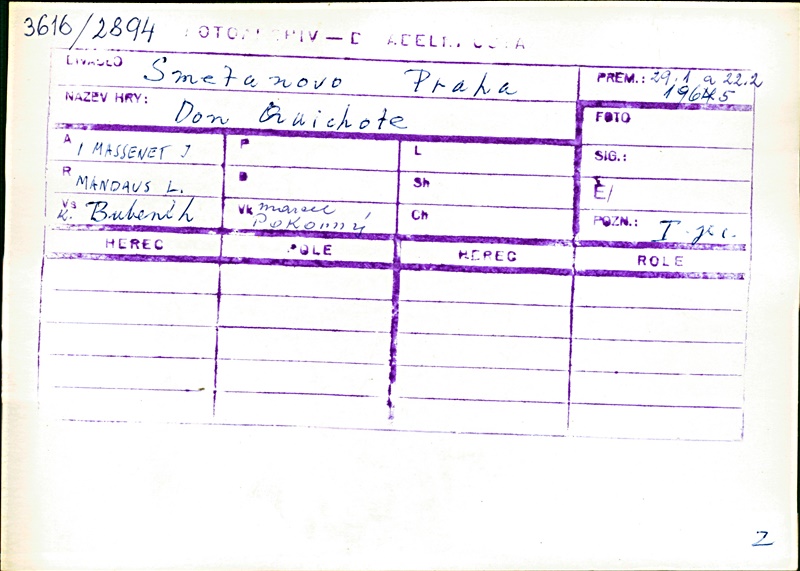 3616/2894
DIVADLO Smetanovo Praha
PREM.: 29.1 a 22.2
1965
NÁZEV HRY: Don Quichote
FOTO
A / MASSENET J
P
L
SIG.:
R MANDAUS L.
D
Sh
É/
Vs K. Bubeník
Vk marcel Pokorný
Ch
POZN.:
HEREC
ROLE
HEREC
ROLE